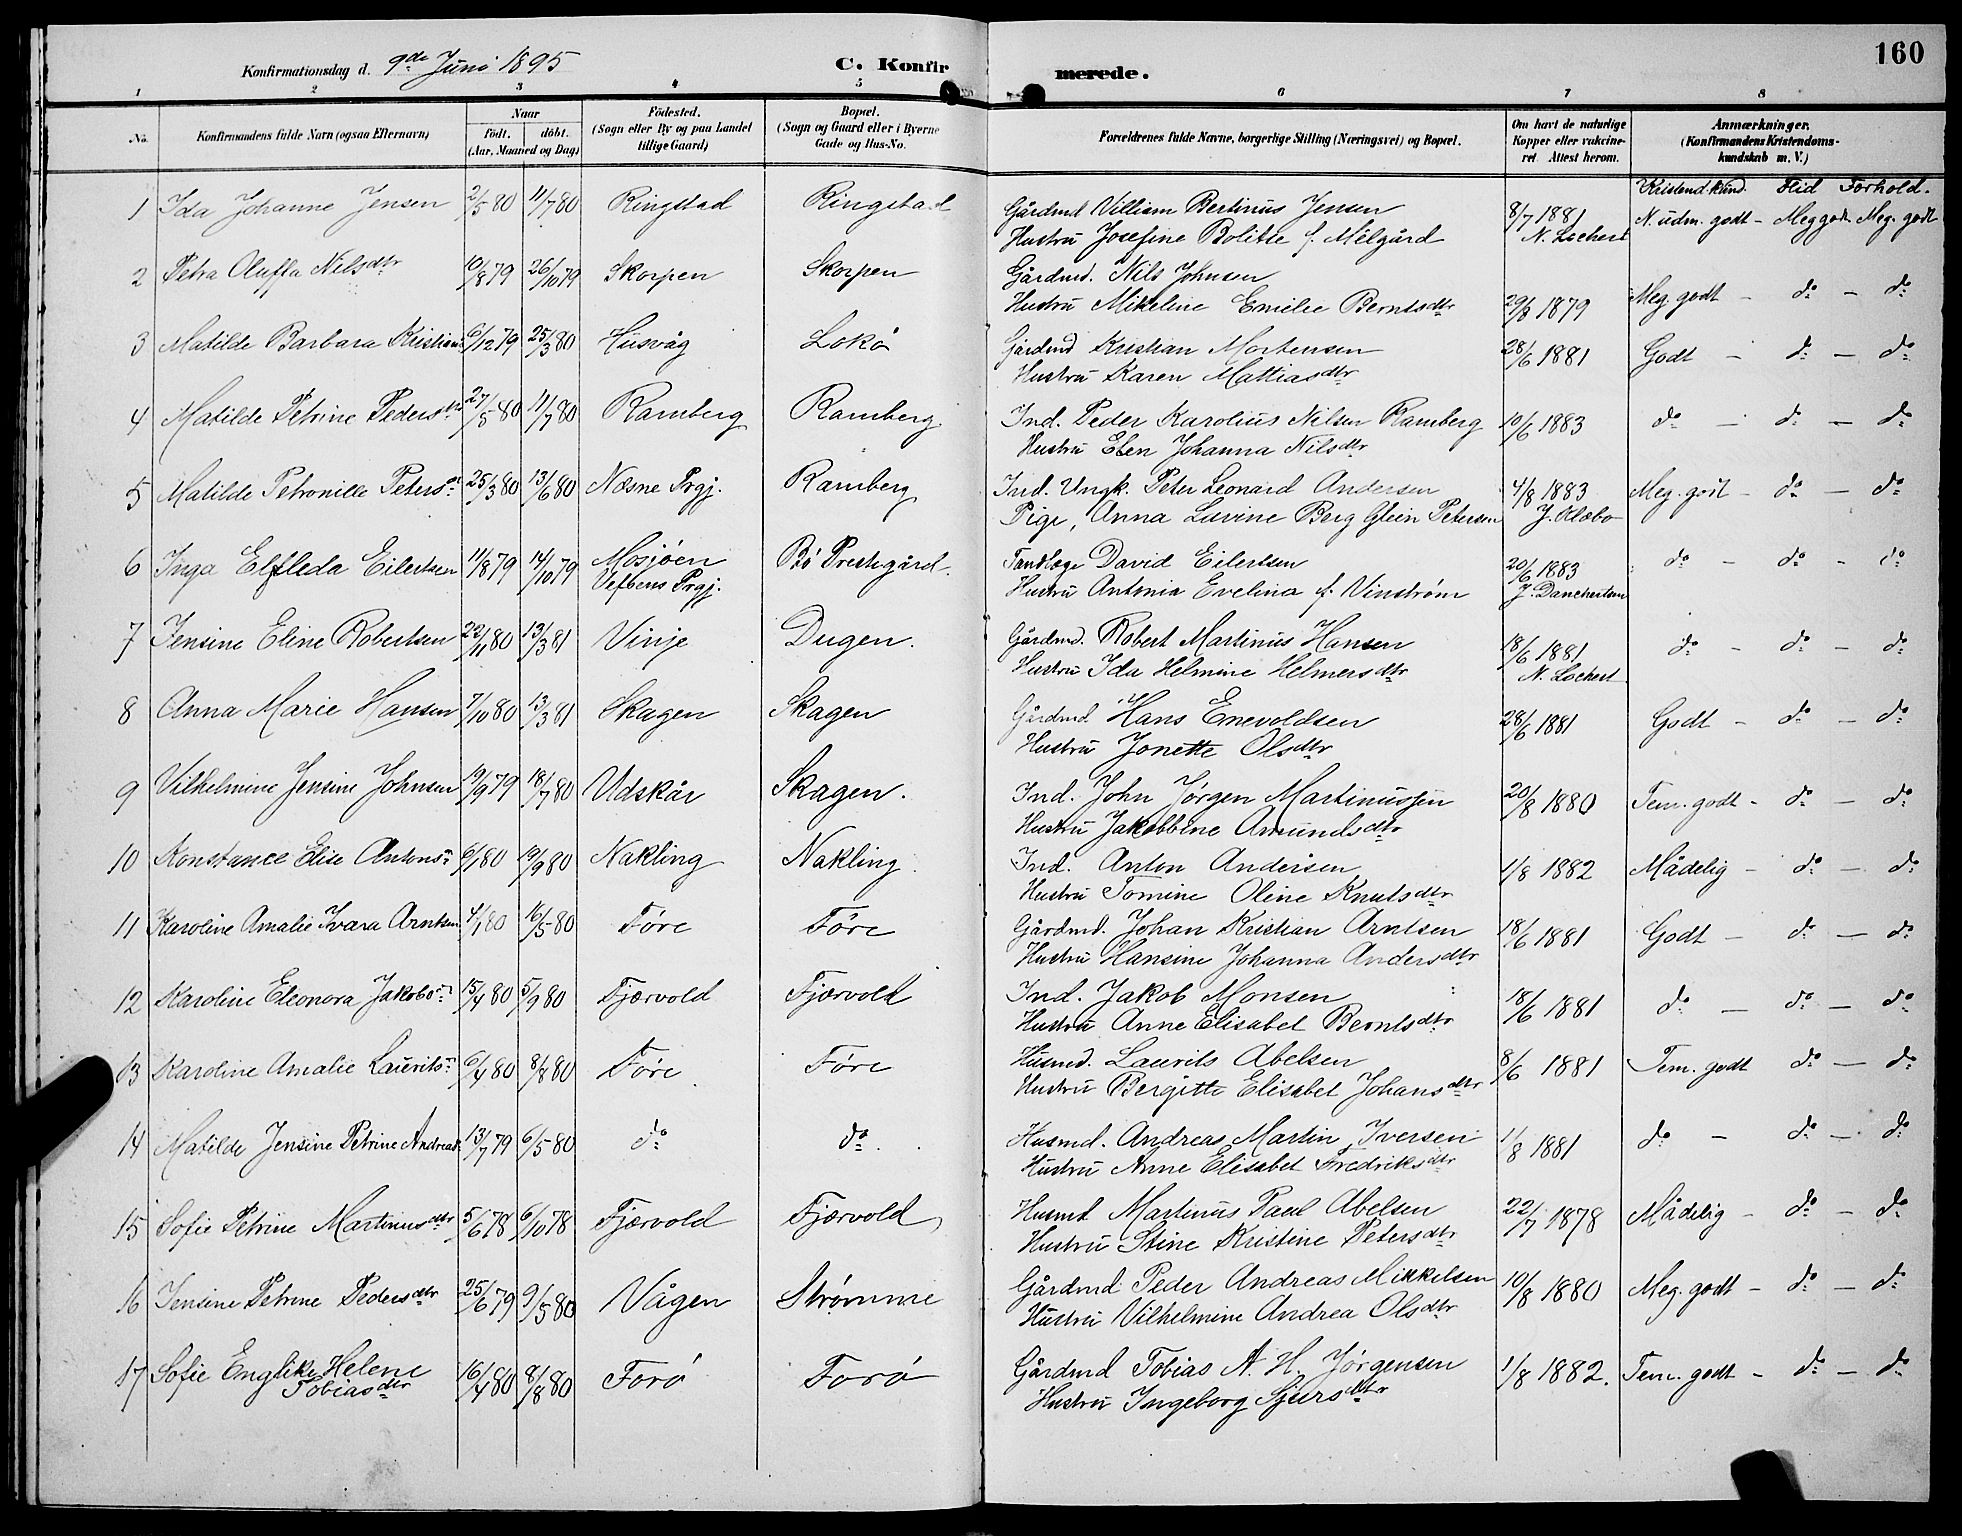 160
Konfirmationsdag d. 9de Juni 1895 C. Konfirmerede.
1 2 3 4 5 6 7 8
No. Konfirmandens fulde Navn (ogsaa Efternavn) Naar födt. döbt. (Aar, Maaned og Dag) Födested. (Sogn eller By og paa Landet tillige Gaard) Bopæl. (Sogn og Gaard eller i Byerne Gade og Hus-No. Forældrenes fulde Navne, borgerlige Stilling (Næringsvei) og Bopæl. Om havt de naturlige Kopper eller vakcineret. Attest herom. Anmærkninger. (Konfirmandens Kristendomskundskab m. V.)
Kristend.kund. Flid Forhold.
1 Ida Johanne Jensen 2/5 80 11/7 80 Ringstad Ringstad Gårdmd Villiam Bertinus Jensen 8/7 1881 N. udm. godt - Meg godt Meg. godt
Hustru Josefine Bolette f. Melgård N. Lochert
2 Petra Oluffa Nilsdtr 19/8 79 26/10 79 Skorpen Skorpen Gårdmd. Nils Johnsen
Hustru Mikeline Emilie Berntsdtr 29/8 1879 Meg. godt - do - do
3 Matilde Barbara Kristians 6/12 79 25/3 80 Husvåg Lokø Gårdmd Kristian Mortensen 28/6 1881 Godt - do - do
Hustru Karen Mattiasdtr
4 Matilde Petrine Pedersdtr 27/5 80 11/7 80 Ramberg Ramberg Ind. Peder Karolius Nilsen Ramberg 10/6 1883 do - do - do
Hustru Elen Johanna Nilsdtr
5 Matilde Petronille Petersdtr 25/3 80 13/6 80 Næsne Prgj. Ramberg Ind. Ungk. Peter Leonard Andersen 4/8 1883 Meg. godt - do - do
Pige, Anna Lavine Berg Glein Petersen J. Olebo
6 Inga Elfleda Eilertsen 11/8 79 14/10 79 Mosjøen Vefsens Prgj. Bö Prestegård. Tandlæge David Eilertsen 20/6 1883 do - do - do
Hustru Antonia Evelina f. Vinstrøm J. Danchertsen
7 Jensine Eline Robertsen 22/11 80 13/3 81 Vinje Dugen. Gårdmd. Robert Martinus Hansen 18/6 1881 do - do - do
Hustru Ida Helmine Helmersdtr N. Lochert
8 Anna Marie Hansen 7/10 80 13/3 81 Skagen Skagen Gårdmd Hans Enevoldsen 28/6 1881 Godt - do - do
Hustru Jonette Olsdtr
9 Vilhelmine Jensine Johnsen 19/9 79 18/7 80 Udskår Skagen. Ind. John Jørgen Martinussen 20/8 1880 Tem. godt - do - do
Hustru Jakobbine Amundsdtr
10 Konstance Elise Antons 6/1 80 19/9 80 Nakling Nakling Ind. Anton Andersen 1/8 1882 Mådelig - do - do
Hustru Tomine Oline Knutsdtr
11 Karoline Amalie Ivara Arntsen 4/1 80 16/5 80 Føre Føre Gårdmd. Johan Kristian Arntsen 18/6 1881 Godt - do - do
Hustru Hansine Johanna Andersdtr
12 Karoline Eleonora Jakobs 15/4 80 5/9 80 Fjærvold Fjærvold Ind. Jakob Monsen 18/6 1881 do - do - do
Hustru Anne Elisabet Berntsdtr
13 Karoline Amalie Laurits 6/4 80 8/8 80 Føre Føre Husmd. Laurits Abelsen 8/6 1881 Tem. godt do - do
Hustru Bergitte Elisabet Johansdtr
14 Matilde Jensine Petrine Andreas 13/7 79 6/5 80 do do Husmd. Andreas Martin Iversen 1/8 1881 do - do - do
Hustru Anne Elisabet Fredriksdtr
15 Sofie Petrine Martinusdtr 5/6 78 6/10 78 Fjærvold Fjærvold Husmd Martinus Paul Abelsen 22/7 1878 Mådelig - do - do
Hustru Stine Kristine Petersdtr
16 Jensine Petrine Pedersdtr 25/6 79 9/5 80 Vågen Strømme Gårdmd Peder Andreas Mikkelsen 10/8 1880 Meg. godt - do - do
Hustru Vilhelmine Andrea Olsdtr
17 Sofie Englike Helene Tobiasdtr 16/4 80 8/8 80 Forö Forö Gårdmd Tobias A. H. Jørgensen 1/8 1882. Tem. godt - do - do
Hustru Ingeborg Sjursdtr